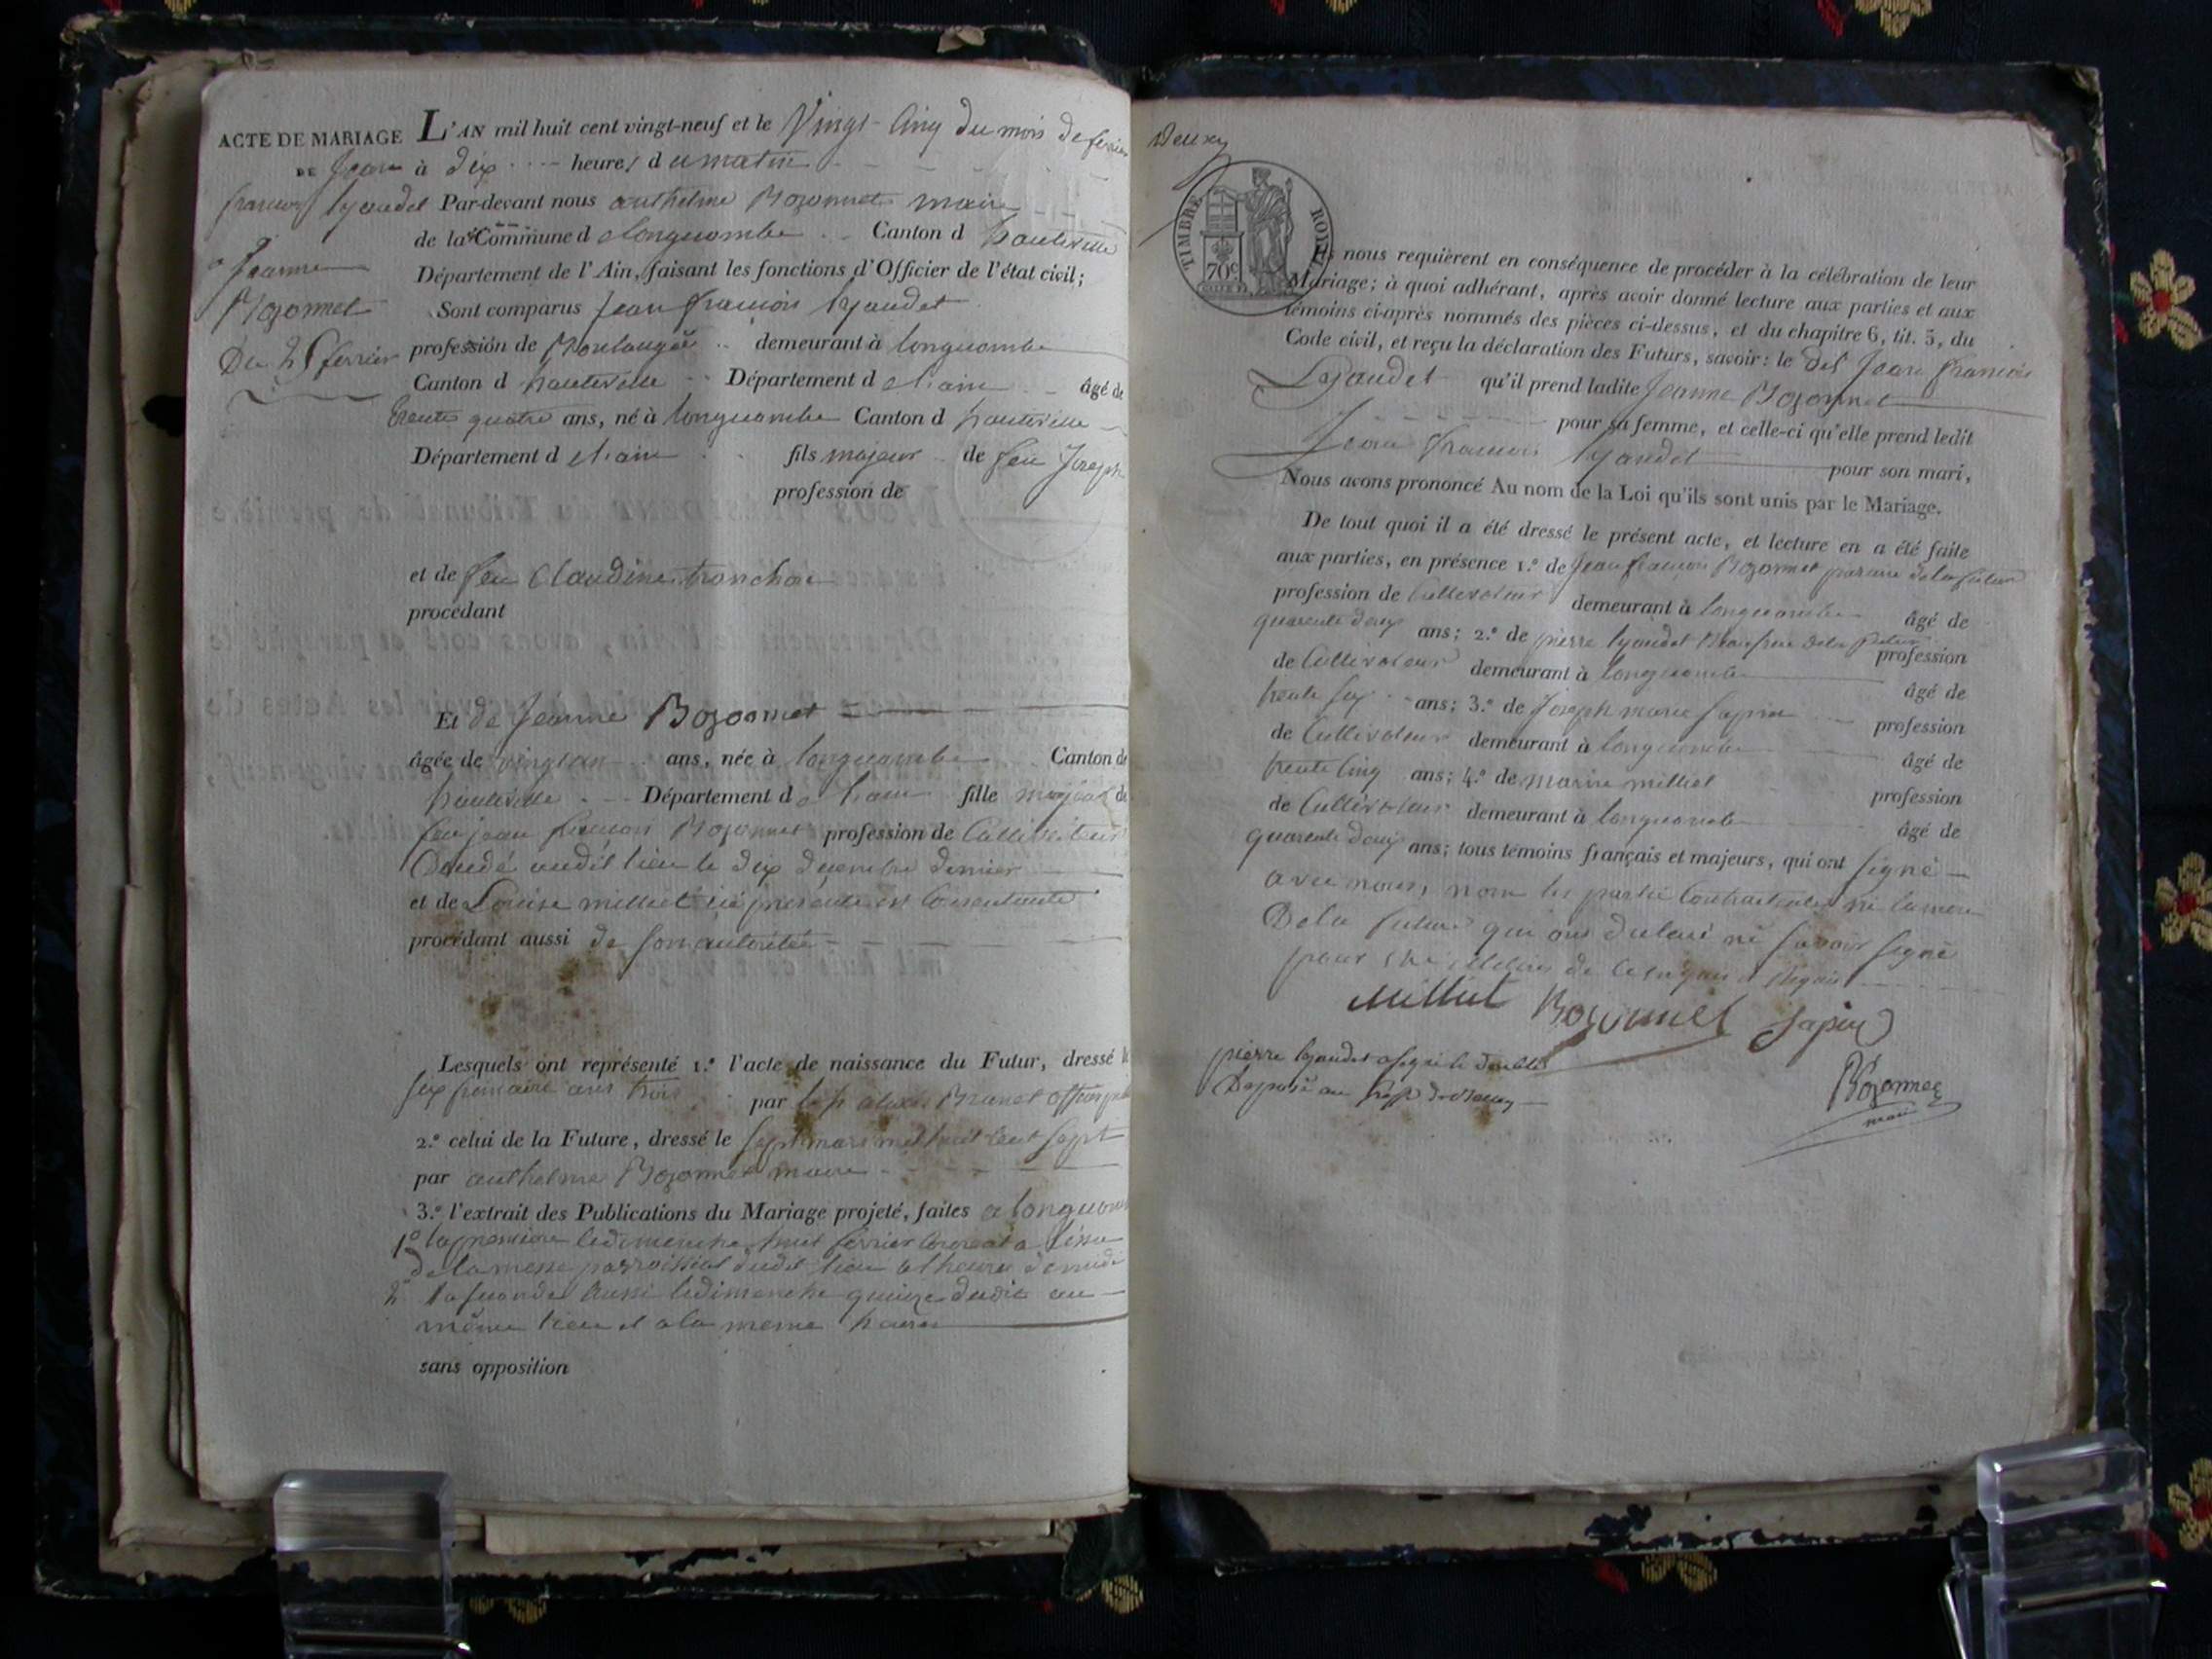 ACTE DE MARIAGE
DE Jean
francois lyaudet
a Jeanne
Bozonnet
Du 25 fevrier
L'AN mil huit cent vingt-neuf et le Vingt-Cinq du mois de fevrier
à dix heures du matin
Par-devant nous anthelme Bozonnet maire
de la Commune d e longecombe Canton d hauteville
Département de l'Ain, faisant les fonctions d'Officier de l'état civil;
Sont comparus Jean francois lyaudet
profession de demeurant à longecombe
Canton d hauteville Département d e l'ain âgé de
trente quatre ans, né à longecombe Canton d hauteville
Département d e l'ain fils majeur de feu Joseph
profession de
et de feu Claudine
procédant
Et de Jeanne Bozonnet
âgée de ans, née à longecombe Canton de
hauteville Département d e l'ain fille majeur de
feu jean francois Bozonnet profession de Cultivateur
décédé audit lieu le dix decembre dernier
et de Louise milliet ici présente et Consentante
procédant aussi de son autoritée
Lesquels ont représenté 1.º l'acte de naissance du Futur, dressé le
six frimaire an trois par le Sr Brunet
2.º celui de la Future, dressé le sept mars mil huit cent sept
par anthelme Bozonnet maire
3.º l'extrait des Publications du Mariage projeté, faites a longecombe
1º la premiere le dimanche huit fevrier Courant a l'issu
de la messe parroissial dudit lieu a l'heure de midi
2º la seconde aussi le dimanche quinze dudit au
même lieu et a la meme heure
sans opposition
Deux
TIMBRE ROYAL
70c
nous requièrent en conséquence de procéder à la célébration de leur
Mariage; à quoi adhérant, après avoir donné lecture aux parties et aux
témoins ci-après nommés des pièces ci-dessus, et du chapitre 6, tit. 5, du
Code civil, et reçu la déclaration des Futurs, savoir: le dit Jean francois
Lyaudet qu'il prend ladite Jeanne Bozonnet
pour sa femme, et celle-ci qu'elle prend ledit
Jean francois lyaudet pour son mari,
Nous avons prononcé Au nom de la Loi qu'ils sont unis par le Mariage.
De tout quoi il a été dressé le présent acte, et lecture en a été faite
aux parties, en présence 1.º de Jean francois Bozonnet de la future
profession de Cultivateur demeurant à longecombe âgé de
quarente deux ans; 2.º de pierre lyaudet Beau frere de la future profession
de Cultivateur demeurant à longecombe âgé de
trente six ans; 3.º de Joseph marie Sapin profession
de Cultivateur demeurant à longecombe âgé de
trente Cinq ans; 4.º de milliet profession
de Cultivateur demeurant à longecombe âgé de
quarente deux ans; tous témoins français et majeurs, qui ont signé
avec nous, non les partie Contractante ni la mere
de la future qui ont declaré ne savoir signé
pour de ce
Milliet Bozonnet Sapin
pierre lyaudet a signé le double
Déposé au
Bozonnet
maire